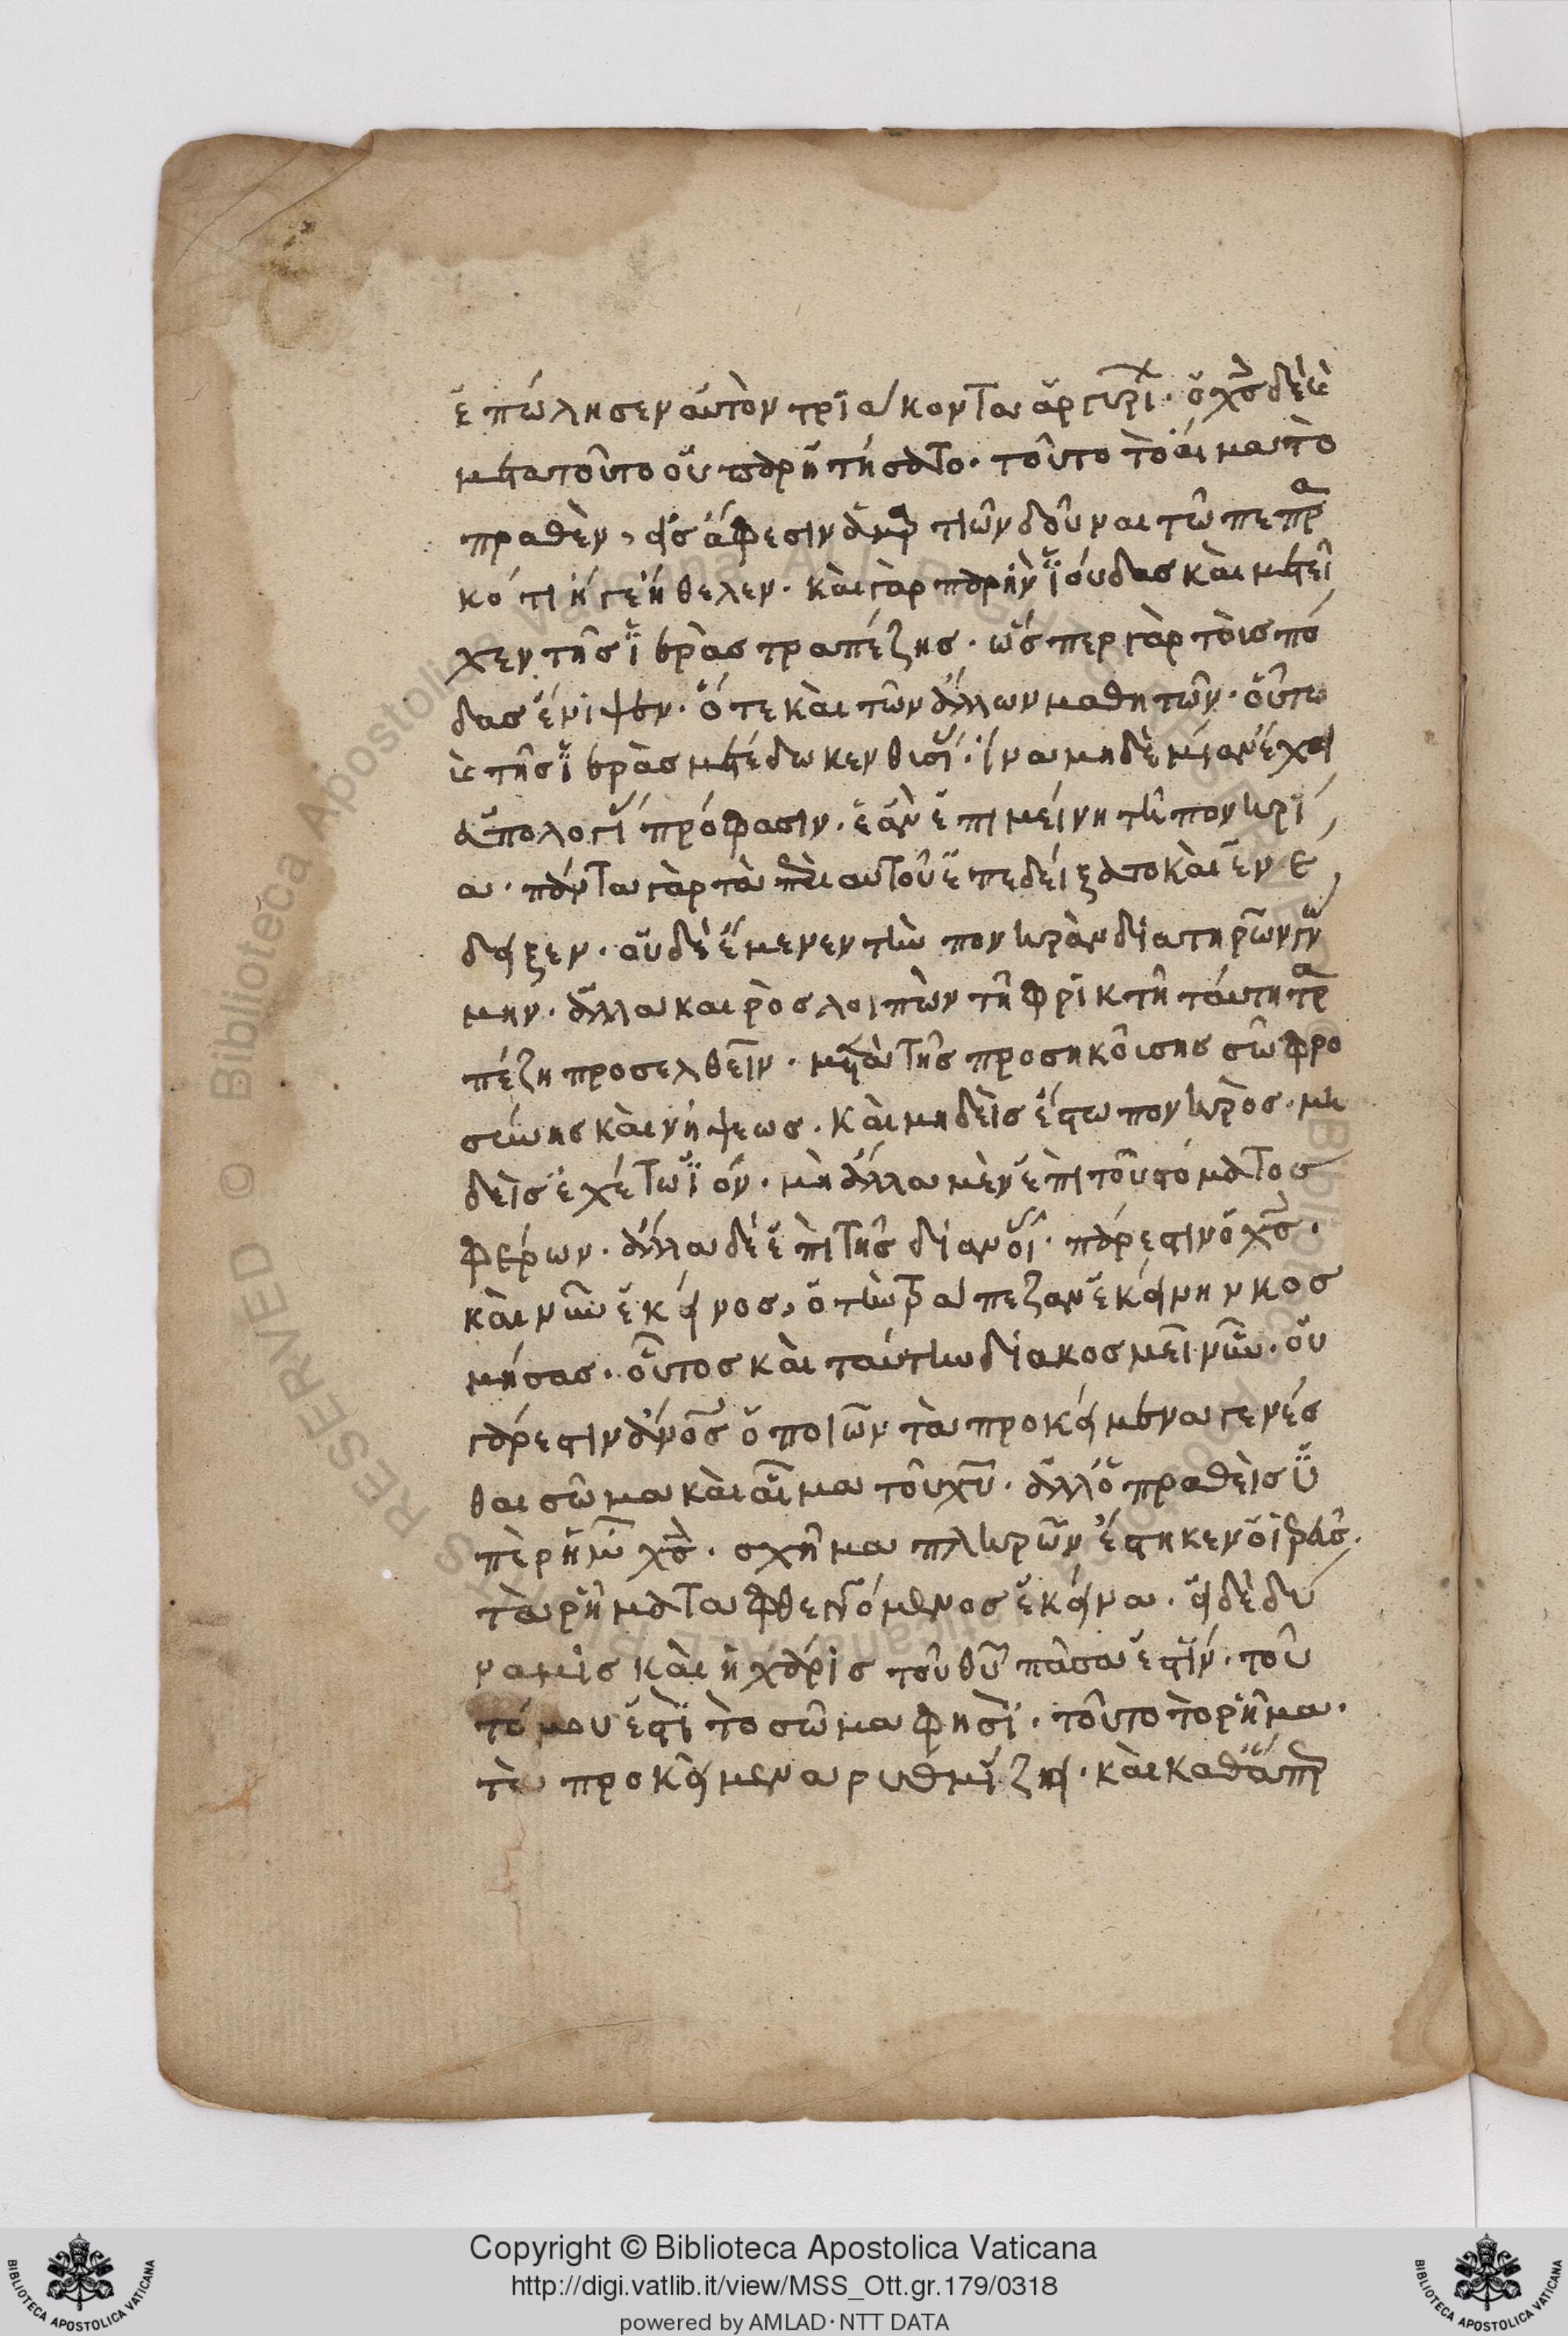 ἐπώλησεν αὐτὸν τριάκοντα ἀργυρί· ὁ χς δὲ ἐ
μετὰ τοῦτο οὐ παρῃτήσατο· τοῦτο τὸ αἷμα τὸ
πραθὲν, εἰς ἄφεσιν ἁμρτιῶν δοῦναι τῷ πεπρα
κότι ἥγε ἤθελεν· καὶ γὰρ παρῆν ἰούδας καὶ μετεῖ
χεν τῆς ἱερᾶς τραπέζης· ὥσπερ γὰρ τοὶς πό
δας ἔνιψεν· ὅτε καὶ τῶν ἄλλων μαθητῶν· οὕτω
κ τῆς ἱερᾶς μετέδωκεν θυσί· ἵνα μηδὲ μίαν ἔχει
ἀπολογί πρόφασιν· ἐὰν ἐπιμείνη τῆ πονηρί
α· πάντα γὰρ τὰ παρ αὐτοῦ ἐπεδείξατο καὶ ἐνέ
δειξεν· αὐδὲ ἔμενεν τὴν πονηρὰν διατηρῶν γν
μην· ἀλλα καιρὸς λοιπὼν τῆ φρικτῆ ταύτη τρα
πέζη προσελθεῖν· μετὰ τῆς προσηκούσης σωφρο
σύνης καὶ νήψεως· καὶ μηδεὶς ἔστω πονηρὸς· μη
δεὶς ἐχέτω ἰόν· μὴ ἄλλα μὲν ἐπὶ τοῦ στόματος
φέρων· ἄλλα δὲ ἐπὶ τῆς διανοί· πάρεστιν ὁ χς·
καὶ νῦν ἐκεῖνος, ὁ τὴν τράπεζαν ἐκείνην κοσ
μήσας· οὗτος καὶ ταύτην διακοσμεῖ νῦν· οὐ
γάρ ἐστιν ἄνος ὁ ποιῶν τὰ προκείμενα γενές
θαι σῶμα καὶ αἷμα τοῦ χυ· ἀλλ ὁ πραθεὶς ὑ
πὲρ ἡμῶ χς· σχῆμα πληρῶν ἕστηκεν ὁ ἱρεύς·
τὰ ρήματα φθεγγόμενος ἐκεῖνα· ἡ δὲ δύ
ναμις καὶ ἡ χάρις τοῦ θυ πᾶσα ἐστίν· τοῦ
τό μου ἐστὶ τὸ σῶμα φησὶ· τοῦτο τὸ ρῆμα·
τὰ προκείμενα ρυθμίζει· καὶ καθάπρ
Copyright © Biblioteca Apostolica Vaticana
http://digi.vatlib.it/view/MSS_Ott.gr.179/0318
powered by AMLAD·NTT DATA